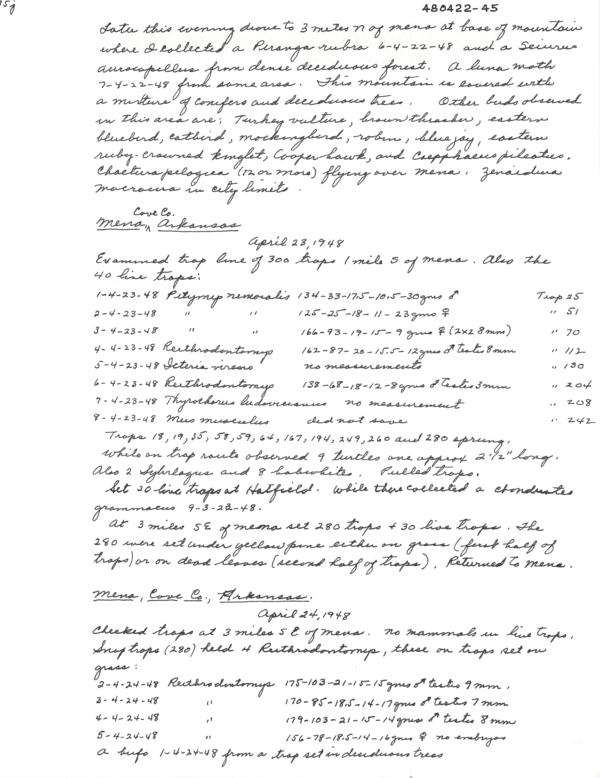 15j
480422-45
Late this evening drove to 3 miles N of Mena at base of mountain
where I collected a Piranga rubra 6-4-22-48 and a Seiurus
aurocapillus from dense deciduous forest. A luna moth
7-4-22-48 from same area. This mountain is covered with
a mixture of conifers and deciduous trees. Other birds observed
in this area are: Turkey vulture, brown thrasher, eastern
bluebird, catbird, mockingbird, robin, blue jay, eastern
ruby-crowned kinglet, Cooper hawk, and Ceophloeus pileatus.
Chaetura pelagica (12 or more) flying over Mena. Zenaidura
macroura in city limits.
Cove Co.
Mena, Arkansas
April 23, 1948
Examined trap line of 300 traps 1 mile S of Mena. Also the
40 live traps:
1-4-23-48 Pitymys nemoralis 134-33-17.5-10.5-30gms ♂ Trap 25
2-4-23-48 " " 125-25-18-11-23gms ♀ " 51
3-4-23-48 " " 166-93-19-15-9gms ♀ (2x2 8mm) " 70
4-4-23-48 Reithrodontomys 162-87-20-15.5-12gms ♂ testes 8mm " 112
5-4-23-48 Icteria virens no measurements " 130
6-4-23-48 Reithrodontomys 138-68-18-12-8gms ♂ testis 3mm " 204
7-4-23-48 Thyrothorus ludovicianus no measurement " 208
8-4-23-48 Mus musculus did not save " 242
Traps 18, 19, 35, 58, 59, 64, 167, 194, 249, 260 and 280 sprung.
While on trap route observed 9 turtles one approx 2½" long.
Also 2 Sylvilagus and 8 bobwhites. Pulled traps.
Set 30 live traps at Hatfield. While there collected a chondestes
grammacus 9-3-23-48.
At 3 miles SE of mena set 280 traps + 30 live traps. The
280 were set under yellow pine either on grass (first half of
traps) or on dead leaves (second half of traps). Returned to Mena.
Mena, Cove Co., Arkansas.
April 24, 1948
Checked traps at 3 miles SE of Mena. No mammals in live traps.
Snap traps (280) held 4 Reithrodontomys, these on traps set on
grass:
2-4-24-48 Reithrodontomys 175-103-21-15-15gms ♂ testis 9mm.
3-4-24-48 " 170-85-18.5-14-17gms ♂ testis 7mm
4-4-24-48 " 179-103-21-15-14gms ♂ testis 8mm
5-4-24-48 " 156-78-18.5-14-16gms ♀ no embryos
A bufo 1-4-24-48 from a trap set in deciduous trees